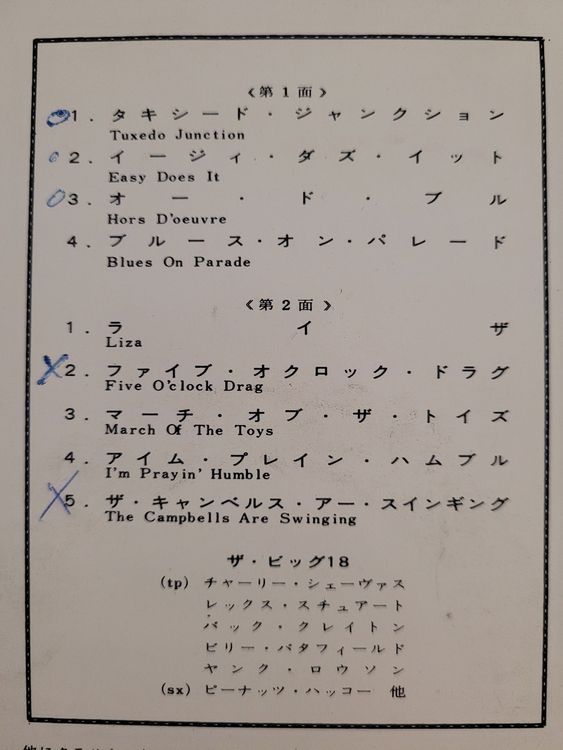 《第1面》
1. タキシード・ジャンクション
Tuxedo Junction
2. イージィ・ダズ・イット
Easy Does It
3. オー・ド・ブル
Hors D'oeuvre
4. ブルース・オン・パレード
Blues On Parade
《第2面》
1. ライザ
Liza
2. ファイブ・オクロック・ドラグ
Five O'clock Drag
3. マーチ・オブ・ザ・トイズ
March Of The Toys
4. アイム・プレイン・ハムブル
I'm Prayin' Humble
5. ザ・キャンベルス・アー・スインギング
The Campbells Are Swinging
ザ・ビッグ18
(tp) チャーリー・シェーヴァス
レックス・スチュアート
バック・クレイトン
ビリー・バタフィールド
ヤンク・ロウソン
(sx) ピーナッツ・ハッコー 他